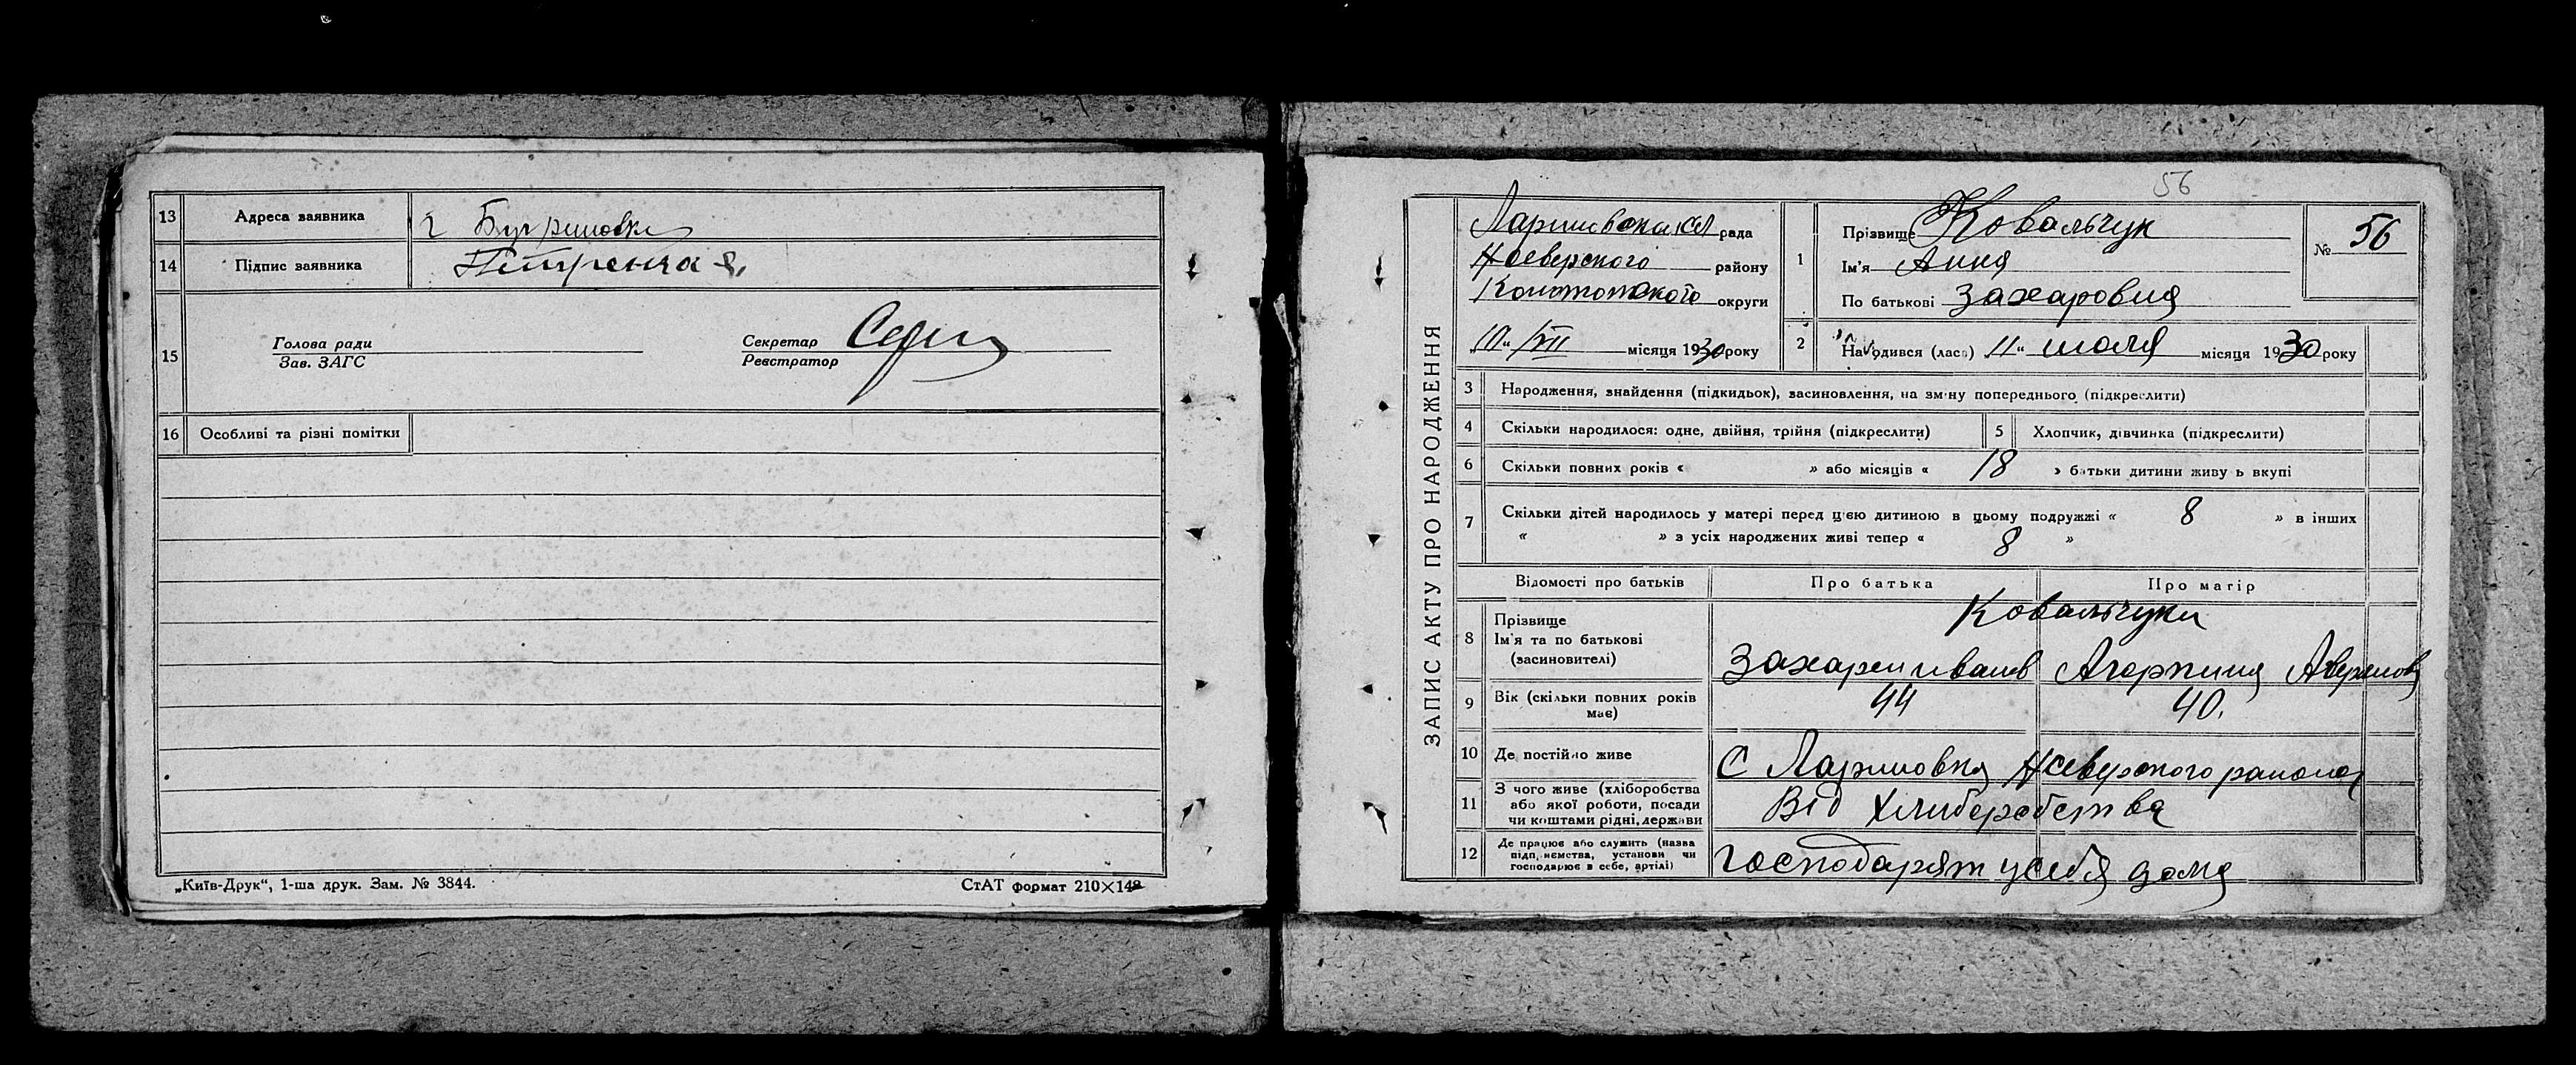 13 Адреса заявника
14 Підпис заявника
15 Голова ради
Зав. ЗАГС
Секретар
Реєстратор
16 Особливі та різні помітки
„Київ-Друк“, 1-ша друк. Зам. № 3844.
СтАТ формат 210×148
56
ЗАПИС АКТУ ПРО НАРОДЖЕННЯ
рада
району
Конотопского округи
"10" /VII місяця 1930 року
1 Прізвище Ковальчук
Ім'я Анна
По батькові Захаровна
№ 56
2 Народився (лась) 11" июля місяця 1930 року
3 Народження, знайдення (підкидьок), засиновлення, на зміну попереднього (підкреслити)
4 Скільки народилося: одне, двійня, трійня (підкреслити)
5 Хлопчик, дівчинка (підкреслити)
6 Скільки повних років « » або місяців « 18 » батьки дитини живуть вкупі
7 Скільки дітей народилось у матері перед цією дитиною в цьому подружжі « 8 » в інших
« » з усіх народжених живі тепер « 8 »
Відомості про батьків
Про батька
Про матір
8 Прізвище
Ім'я та по батькові
(засиновителі)
Ковальчуки
Захарий Иванов
9 Вік (скільки повних років має)
44
40.
10 Де постійно живе
С Лариновка Нсеверского района
11 З чого живе (хліборобства
або якої роботи, посади
чи коштами рідні, держави
Від
12 Де працює або служить (назва
підприємства, установи чи
господарює в себе, артілі)
господарят у себя дома